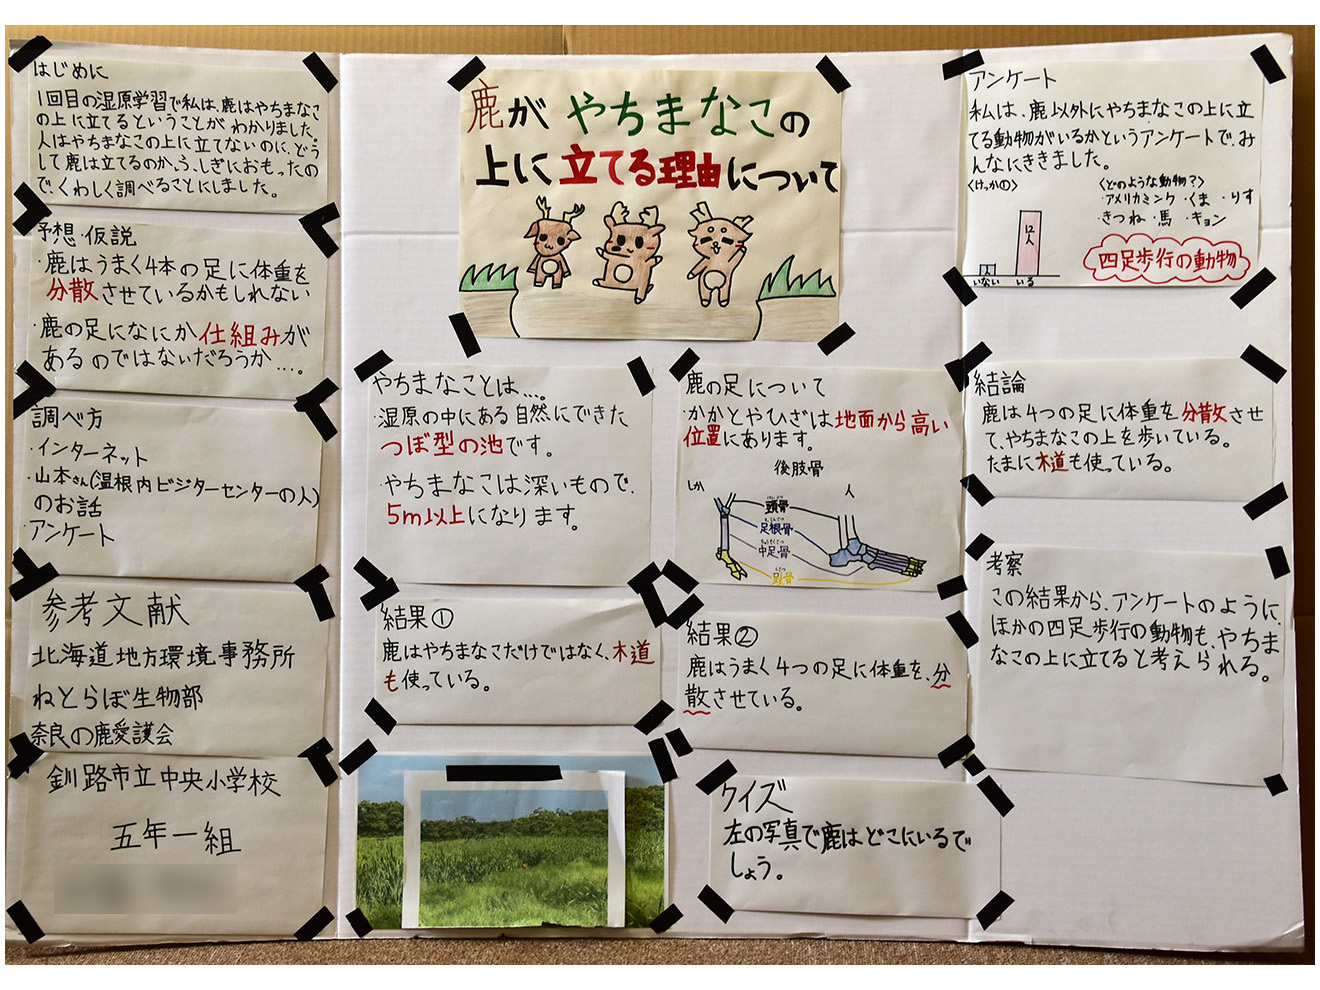 はじめに
1回目の湿原学習で私は、鹿はやちまなこ
の上に立てるということがわかりました。
人はやちまなこの上に立てないのに、どう
して鹿は立てるのか、ふしぎにおもったの
で、くわしく調べることにしました。
予想・仮説
・鹿はうまく4本の足に体重を
分散させているかもしれない
・鹿の足になにか仕組みが
あるのではないだろうか…。
調べ方
・インターネット
・山本さん(温根内ビジターセンターの人)
のお話
・アンケート
参考文献
北海道地方環境事務所
ねとらぼ生物部
奈良の鹿愛護会
釧路市立中央小学校
五年一組
鹿がやちまなこの
上に立てる理由について
やちまなことは…。
・湿原の中にある自然にできた
つぼ型の池です。
・やちまなこは深いもので、
5m以上になります。
鹿の足について
・かかとやひざは地面から高い
位置にあります。
後肢骨
しか
人
頸骨
足根骨
中足骨
趾骨
結果①
鹿はやちまなこだけではなく、木道
も使っている。
結果②
鹿はうまく4つの足に体重を、分
散させている。
クイズ
左の写真で鹿はどこにいるで
しょう。
アンケート
私は、鹿以外にやちまなこの上に立
てる動物がいるかというアンケートで、み
んなにききました。
〈けっか①〉
〈どのような動物?〉
・アメリカミンク・くま・りす
きつね・馬・キョン
四足歩行の動物
いない
いる
結論
鹿は4つの足に体重を分散させ
て、やちまなこの上を歩いている。
たまに木道も使っている。
考察
この結果から、アンケートのように、
ほかの四足歩行の動物も、やちま
なこの上に立てると考えられる。